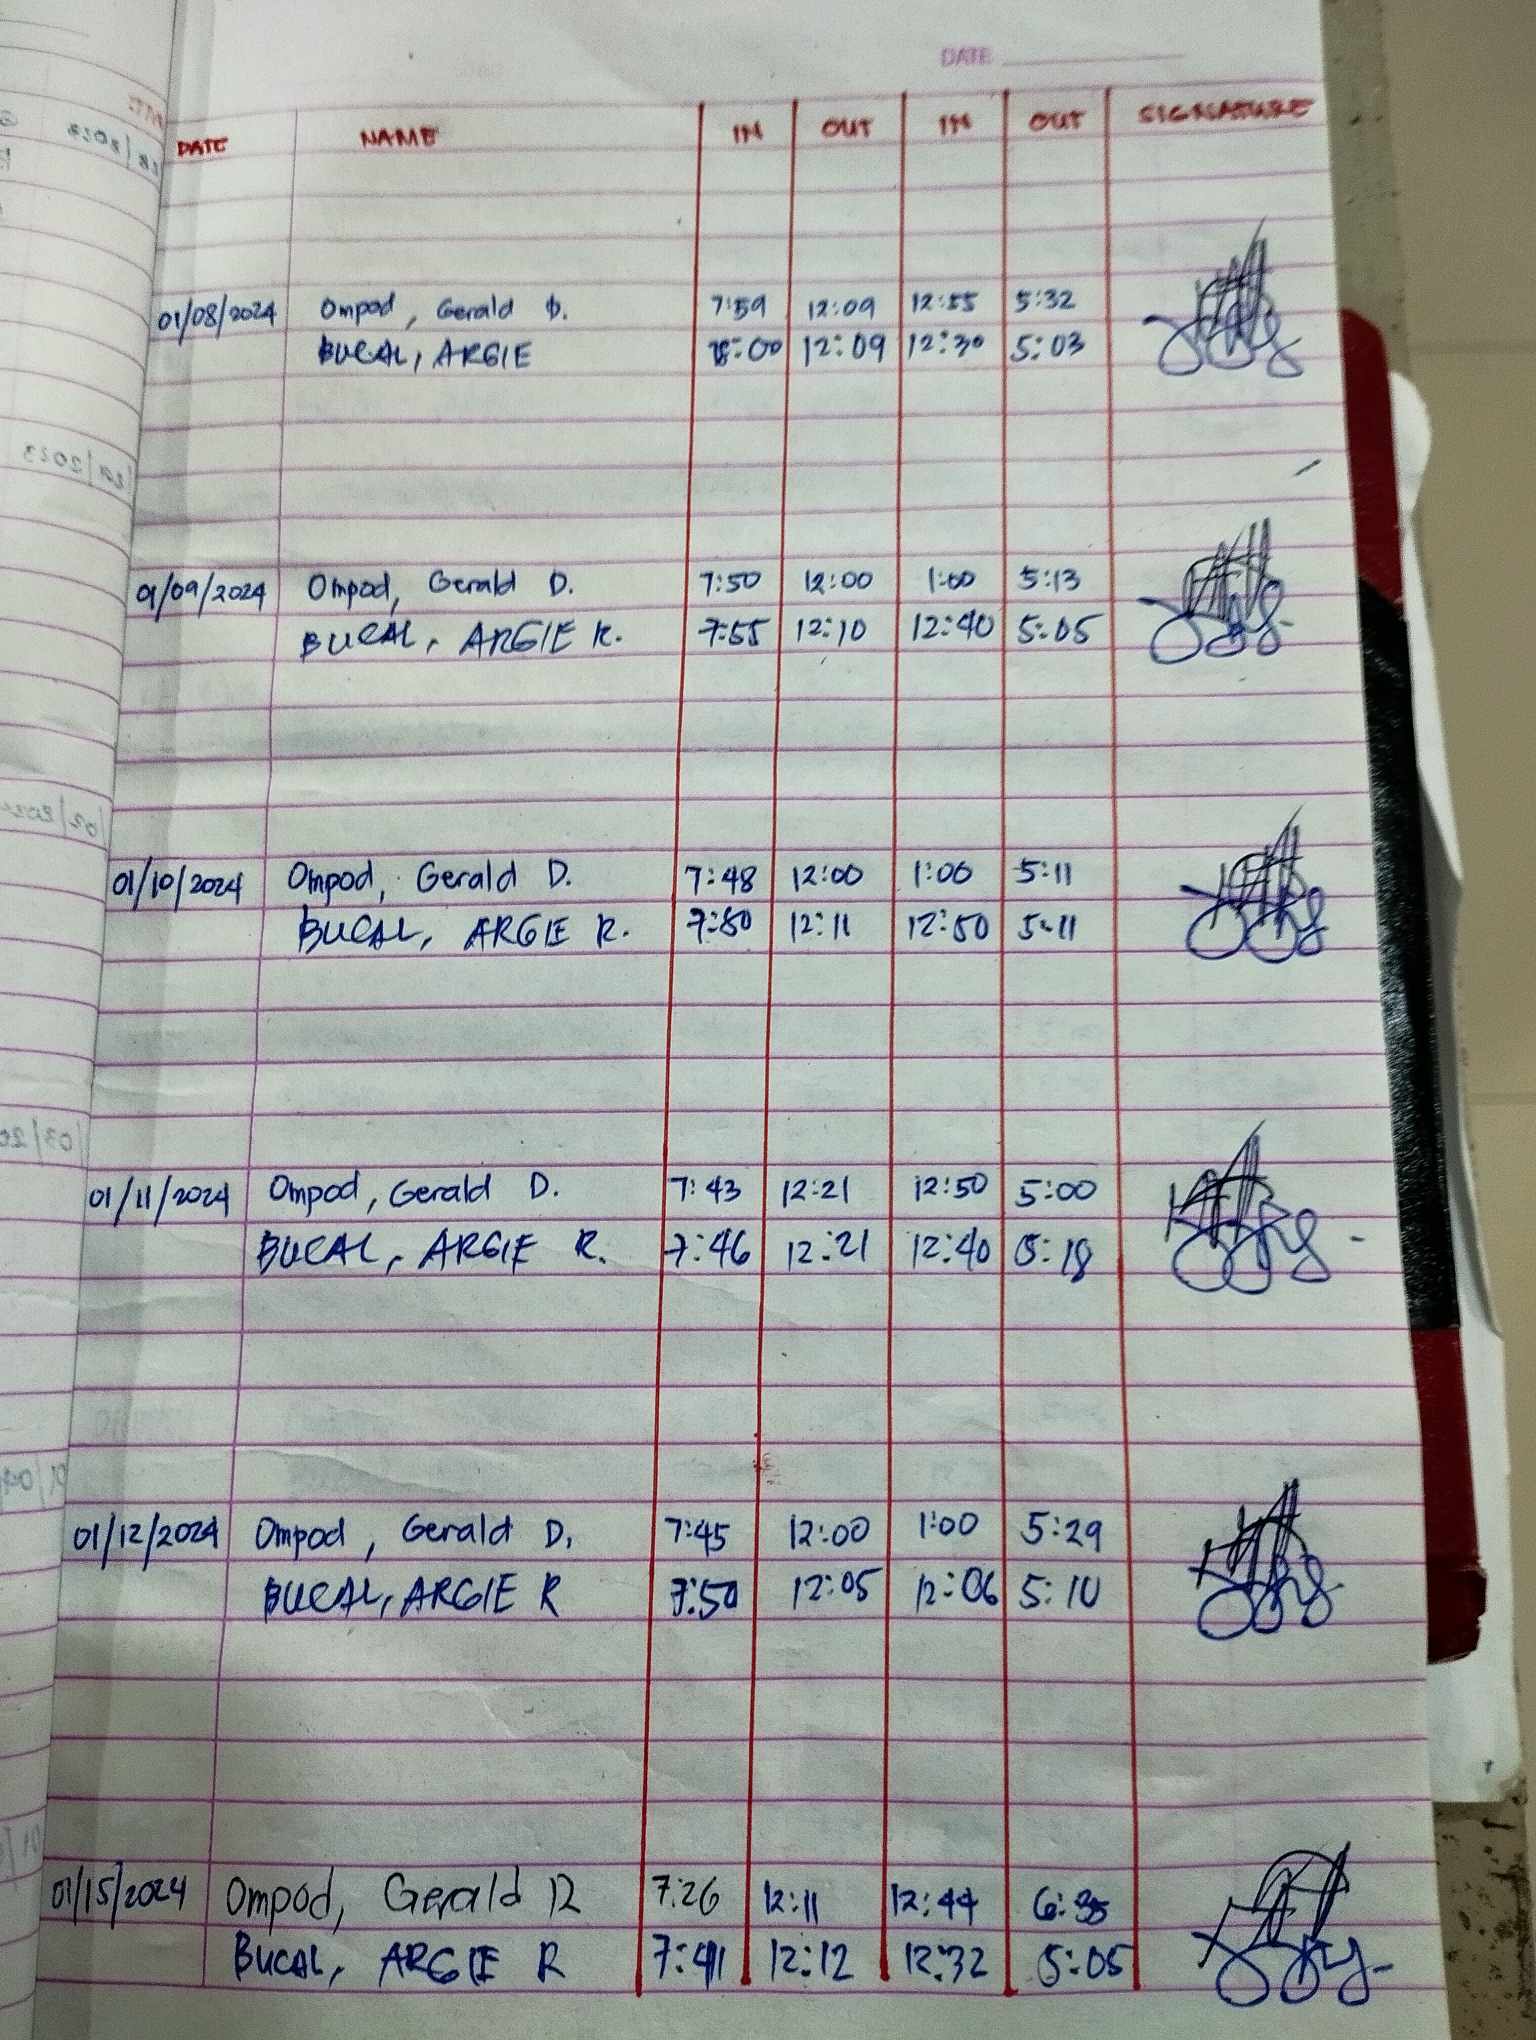 DATE
DATE NAME IN OUT IN OUT SIGNATURE
01/08/2024 Ompod, Gerald D. 7:59 12:09 12:55 5:32
BUCAL, ARGIE 8:00 12:09 12:30 5:03
01/09/2024 Ompod, Gerald D. 7:50 12:00 1:00 5:13
BUCAL, ARGIE R. 7:55 12:10 12:40 5:05
01/10/2024 Ompod, Gerald D. 7:48 12:00 1:00 5:11
BUCAL, ARGIE R. 7:50 12:11 12:50 5:11
01/11/2024 Ompod, Gerald D. 7:43 12:21 12:50 5:00
BUCAL, ARGIE R. 7:46 12:21 12:40 5:18
01/12/2024 Ompod, Gerald D. 7:45 12:00 1:00 5:29
BUCAL, ARGIE R 7:50 12:05 12:06 5:10
01/15/2024 Ompod, Gerald D 7:26 12:11 12:44 6:35
BUCAL, ARGIE R 7:41 12:12 12:32 5:05